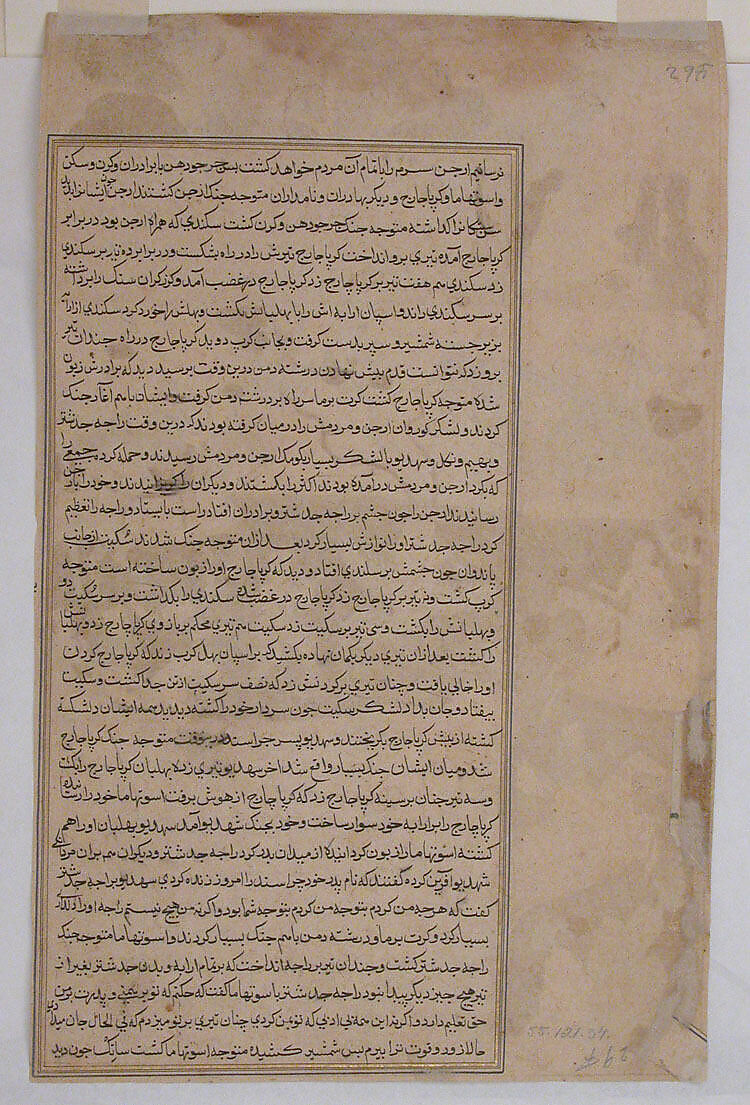 295
نرسانیم ارجن سرم را با تمام آن مردم خواهد کشت پس جرجودهن با برادران و کرن و سکن
واسوتهاما و کرپاجارج و دیکر بهادران و نامداران متوجه جنک ارجن کشتند ارجن چون ایشانرا بدید
را کذاشته متوجه جنک جرجودهن و کرن کشت سکندی که همراه ارجن بود در برابر
کرپاجارج آمده تیری برو انداخت کرپاجارج تیرش را در راه بشکست و در برابر ده تیر بر سکندی
زد سکندی هم هفت تیر بر کرپاجارج زد کرپاجارج در غضب آمد و کرز کران سنک را برداشته
بر سر سکندی راند و اسپان ارابه اش را با بهلبانش بکشت و بهلش را خورد کرد سکندی از ارابه
بزیر جسته شمشیر و سپر بدست کرفت و بجانب کرپ دوید کرپاجارج در راه جندان تیر
برو زد که نتوانست قدم پیش نهادن درشته دمن درین وقت برسید دید که برادرش زبون
شده متوجه کرپاجارج کشت کرت برما سر راه بر درشته دمن کرفت و ایشان باهم آغاز جنک
کردند و لشکر کوروان ارجن و مردمش را در میان کرفته بودند که درین وقت راجه جدشتر
و بهیم و نکل و سهدیو با لشکر بسیار بکومک ارجن و مردمش رسیدند و حمله کرده جمعی را
که بکرد ارجن و مردمش درآمده بودند اکثر را بکشتند و دیکران را کریزانیدند و خود را بارجن
رسانیدند ارجن را چون جشم بر راجه جدشتر و برادران افتاد راست بایستاد و راجه را تعظیم
کرد راجه جدشتر او را نوازش بسیار کرد بعد ازان متوجه جنک شدند سکیت از جانب
پاندوان چون چشمش بر سکندی افتاد و دید که کرپاجارج او را زبون ساخته است متوجه
کرپ کشت و نه تیر بر کرپاجارج زد کرپاجارج در غضب شده سکندی را بکذاشت و بر سر سکیت دوید
و بهلبانش را بکشت و سی تیر بر سکیت زد سکیت هم تیری محکم بر بازوی کرپاجارج زد و بهلبانش
را کشت بعد ازان تیری دیکر بکمان نهاده میکشید که بر اسپان بهل کرپ زند که کرپاجارج کردن
او را خالی یافت و چنان تیری بر کردنش زد که نصف سر سکیت از تن جدا کشت و سکیت
بیفتاد و جان بداد لشکر سکیت چون سردار خود را کشته دیدند همه ایشان دلشکسته
کشته از پیش کرپاجارج بکریختند و سهدیو پسر جراسند درین وقت متوجه جنک کرپاجارج
شد و میان ایشان جنک بسیار واقع شد آخر سهدیو تیری زده بهلبان کرپاجارج را بکشت
و سه تیر چنان بر سینه کرپاجارج زد که کرپاجارج از هوش برفت اسوتهاما خود را رسانیده
کرپاجارج را بر ارابه خود سوار ساخت و خود بجنک شهدیو آمد سهدیو بهلبان او را هم
کشته اسوتهاما را زبون کردانیده از میدان بدر کرد راجه جدشتر و دیکران هم بران مردانکی
شهدیو آفرین کرده کفتند که نام پدر خود جراسند را امروز زنده کردی سهدیو براجه جدشتر
کفت که هرچه من کردم بتوجه من کردم بتوجه شما بود و اکر نه من هیچ نیستم راجه او را دلداری
بسیار کرد و کرت برما و درشته دمن باهم جنک بسیار کردند و اسوتهاما متوجه جنک
راجه جدشتر کشت و چندان تیر بر راجه انداخت که بر تمام ارابه و بدن جدشتر بغیر از
تیر هیچ چیز دیکر پیدا نبود راجه جدشتر با سوتهاما کفت که حکنم که تو برهمنی و پدرت بر من
حق تعلیم دارد و اکر نه این همه بی ادبی که تو بمن کردی چنان تیری بر تو میزدم که فی الحال جان میدادی
حالا زور و قوت ترا ببرم پس شمشیر کشیده متوجه اسوتهاما کشت ساتک چون دید
55.121.34